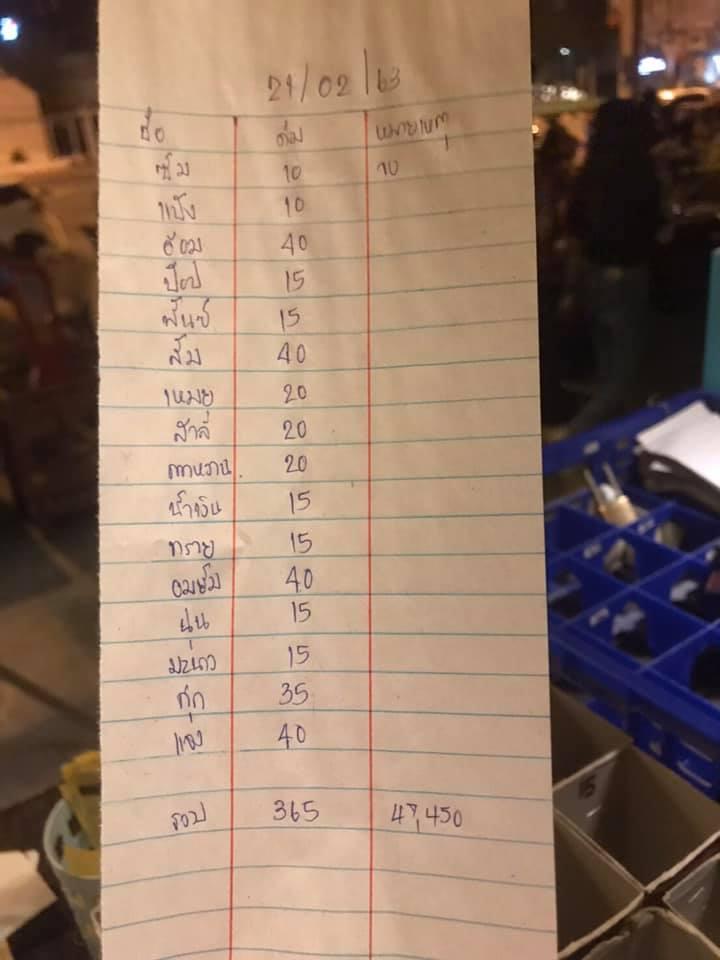 21/02/63
ชื่อ ดื่ม หมายเหตุ
ซิ่ม 10 10
แป้ง 10
อ้อม 40
ป๊อป 15
พันซ์ 15
ส้ม 40
เหมย 20
สาลี่ 20
ตาหวาน 20
น้ำเงิน 15
ทราย 15
อมยิ้ม 40
นุ่น 15
มะนาว 15
กุ๊ก 35
รวม 365 47,450
15